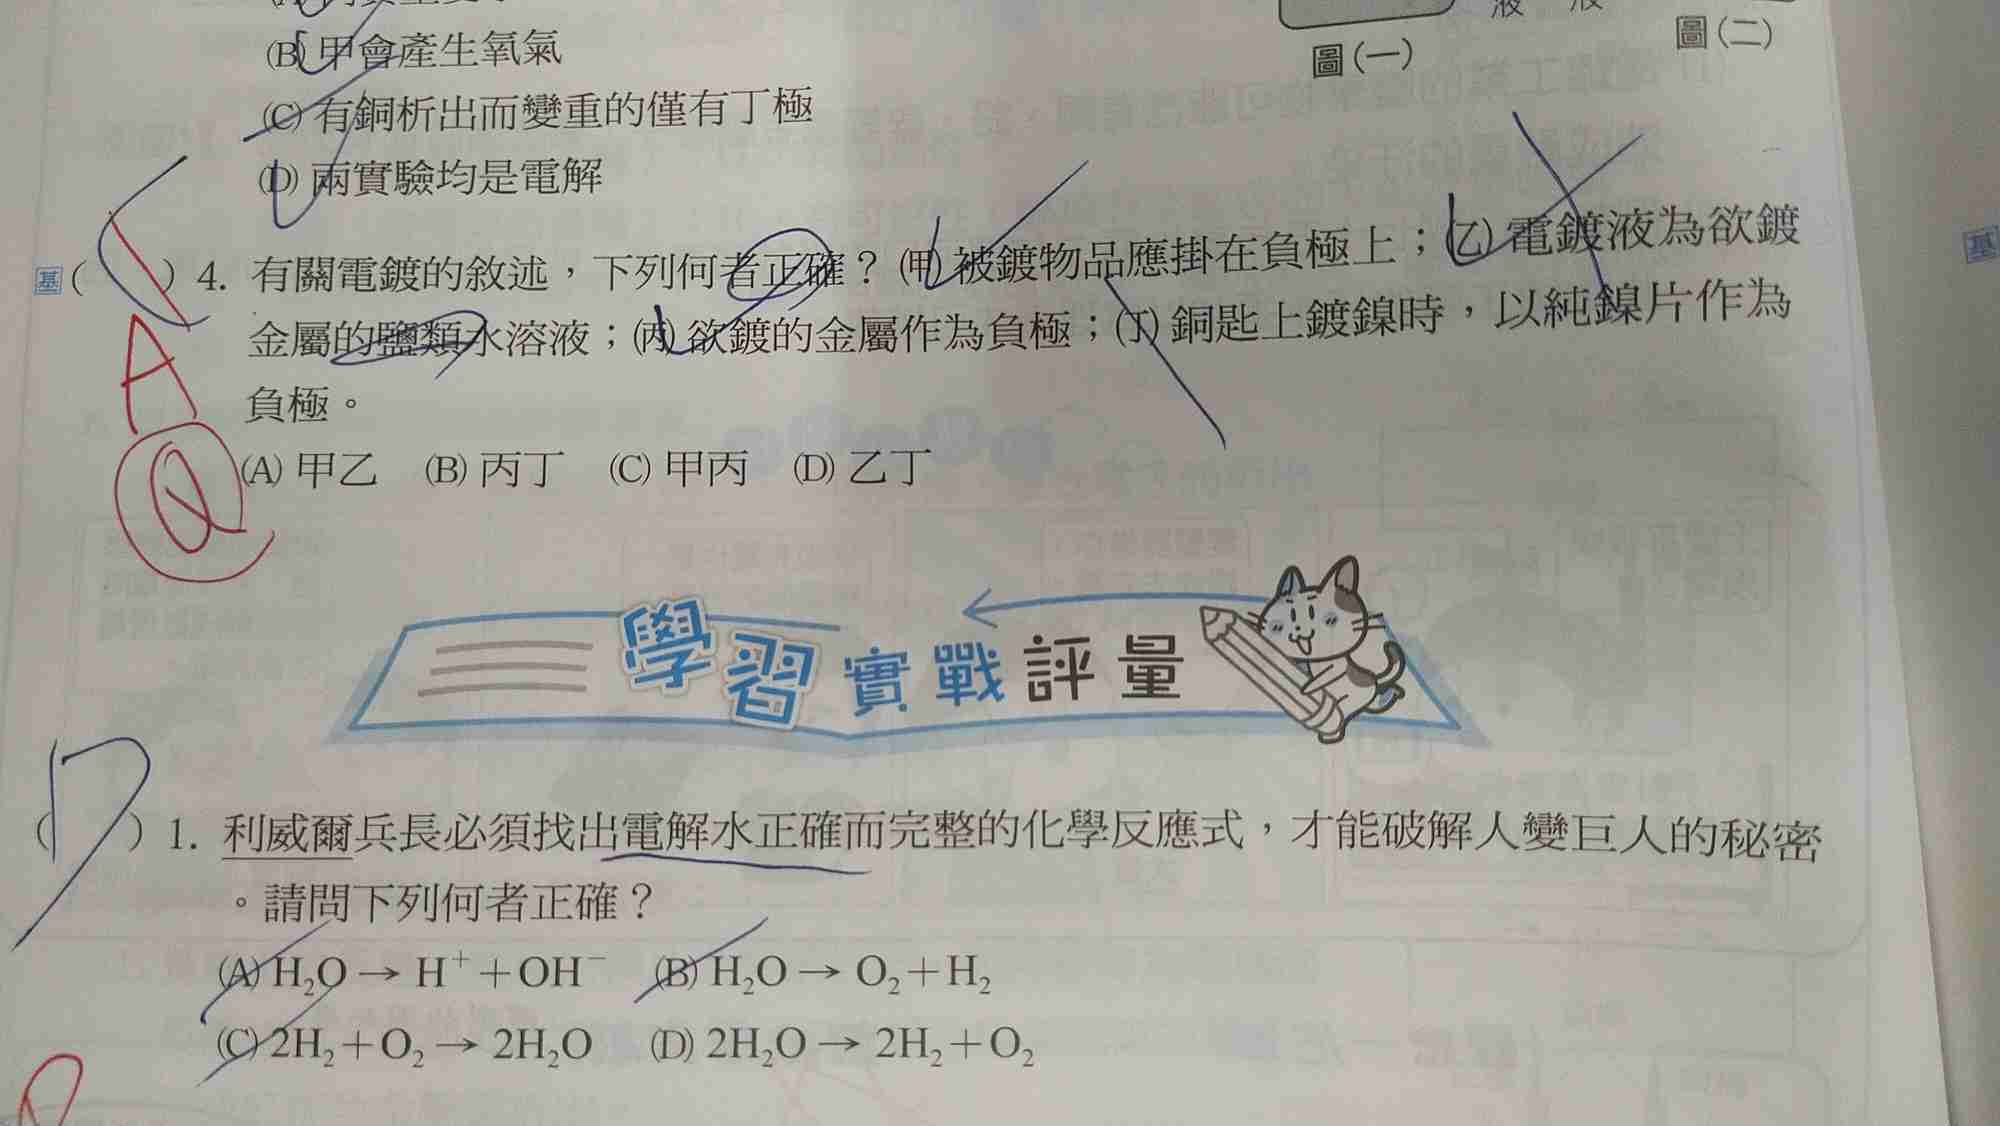 (B) 甲會產生氧氣
(C) 有銅析出而變重的僅有丁極
(D) 兩實驗均是電解
圖(一)
圖(二)
基 ( ) 4. 有關電鍍的敘述，下列何者正確？(甲)被鍍物品應掛在負極上；(乙)電鍍液為欲鍍
金屬的鹽類水溶液；(丙)欲鍍的金屬作為負極；(丁)銅匙上鍍鎳時，以純鎳片作為
負極。
A
Q
(A) 甲乙 (B) 丙丁 (C) 甲丙 (D) 乙丁
基
學習實戰評量
( D ) 1. 利威爾兵長必須找出電解水正確而完整的化學反應式，才能破解人變巨人的秘密
。請問下列何者正確？
(A) H₂O → H⁺＋OH⁻ (B) H₂O → O₂＋H₂
(C) 2H₂＋O₂ → 2H₂O (D) 2H₂O → 2H₂＋O₂